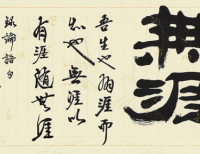 無涯
吾生也有涯而
知也無涯以
有涯隨無涯
錄論語句